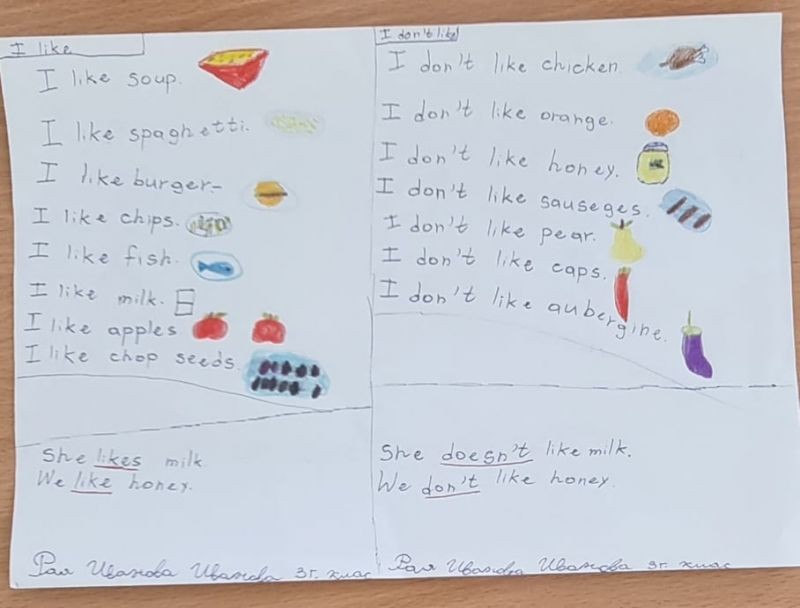 I like
I like soup.
I like spaghetti.
I like burger-
I like chips.
I like fish.
I like milk.
I like apples
I like chop seeds.
She likes milk
We like honey.
Рая Иванова Иванова 3г. клас
I don't like
I don't like chicken.
I don't like orange.
I don't like honey.
I don't like sauseges.
I don't like pear.
I don't like caps.
I don't like aubergine.
She doesn't like milk.
We don't like honey.
Рая Иванова Иванова 3г. клас